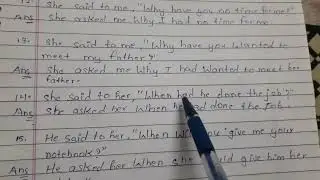 12. She said to me, "Why have you no time for me?"
Ans She asked me why I had no time for me.
13. She said to me, "Why have you wanted to
meet my father?"
Ans She asked me why I had wanted to meet her
father.
14. She said to her, "When had he done the job"?
Ans She asked her when he had done the job.
15. He said to her, "When will you give me your
notebook?"
Ans He asked her when she would give him her